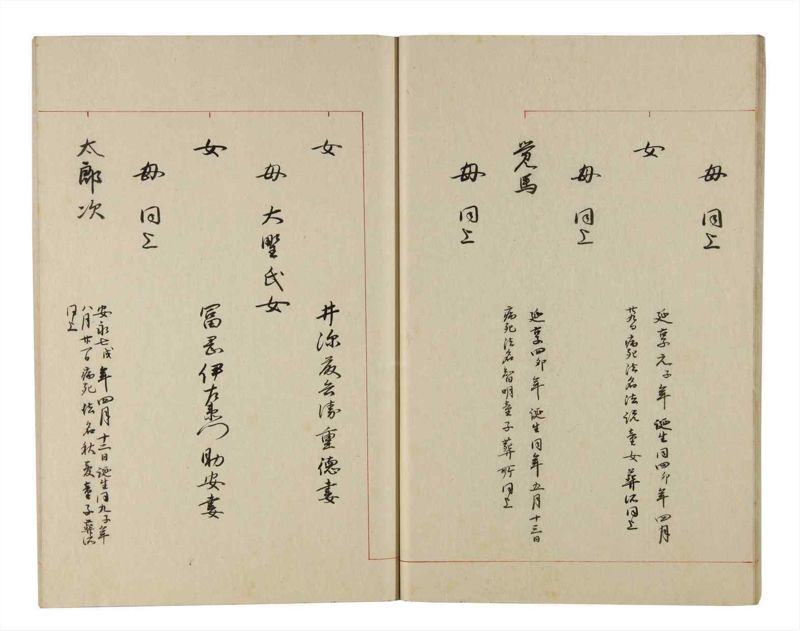 母 同上
女
延享元子年誕生同四卯年四月
廿九日病死法名法説童女葬処同上
母 同上
覚馬
延享四卯年誕生同年五月十三日
病死法名智明童子葬所同上
母 同上
女 井深 重徳妻
母 大墅氏女
女 冨岡伊左衛門助安妻
母 同上
太郎次
安永七戌年四月十一日誕生同九子年
八月廿 日病死法名秋 童子葬処
同上